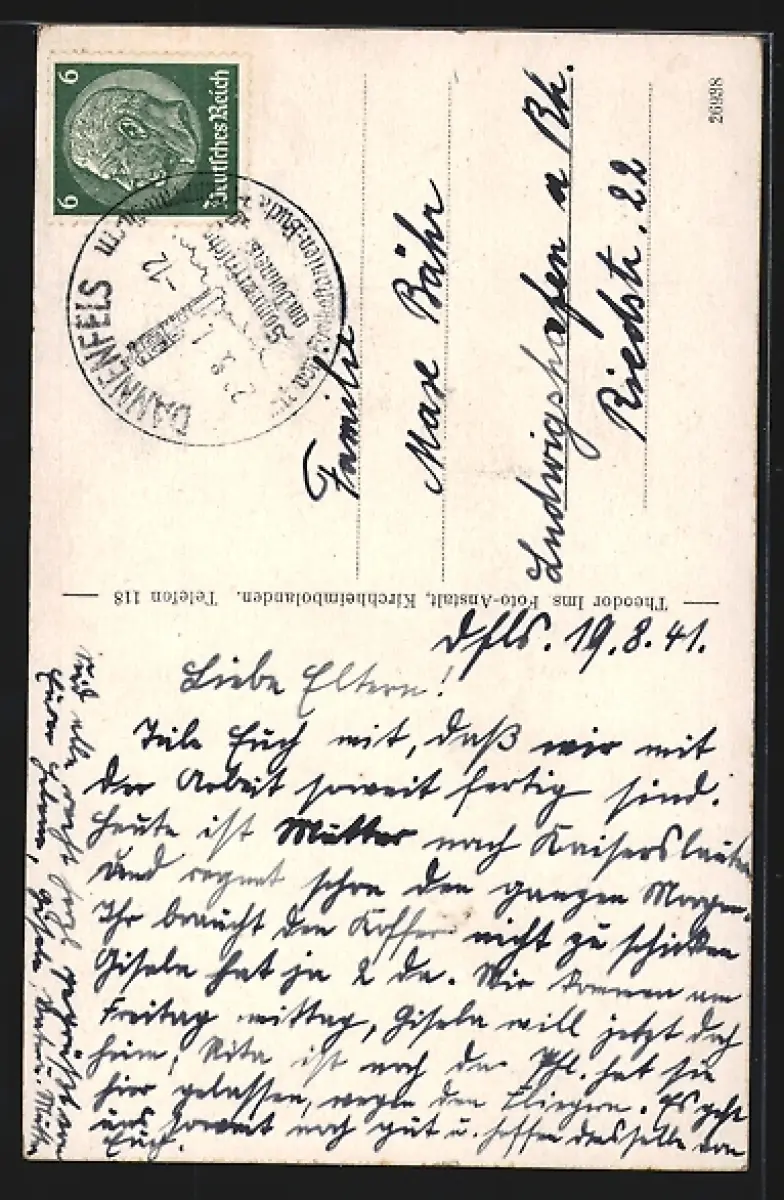 6 6
Deutsches Reich
DANNENFELS
Sommerfrische
am Donnersberg
Kastanien
-12
26938
Familie
Max Bähr
Ludwigshafen a Rh.
Riedstr. 22
Theodor Ims. Foto-Anstalt, Kirchheimbolanden. Telefon 118
Dfls. 19.8.41.
Liebe Eltern!
Teile Euch mit, daß wir mit
der Arbeit soweit fertig sind.
Heute ist Mutter nach Kaiserslautern
und regnet schon den ganzen Morgen.
Ihr braucht den Koffer nicht zu schicken
Gisela hat ja 2 da. Wir kommen am
Freitag mittag, Gisela will jetzt doch
heim, Rita ist noch da. Pfl. hat sie
hier gelassen, wegen den Fliegern. Es geht
uns soweit noch gut u. hoffen dasselbe von
Euch.
Seid alle recht herzl. gegrüßt von
Eurer Gisela, u. Mutter